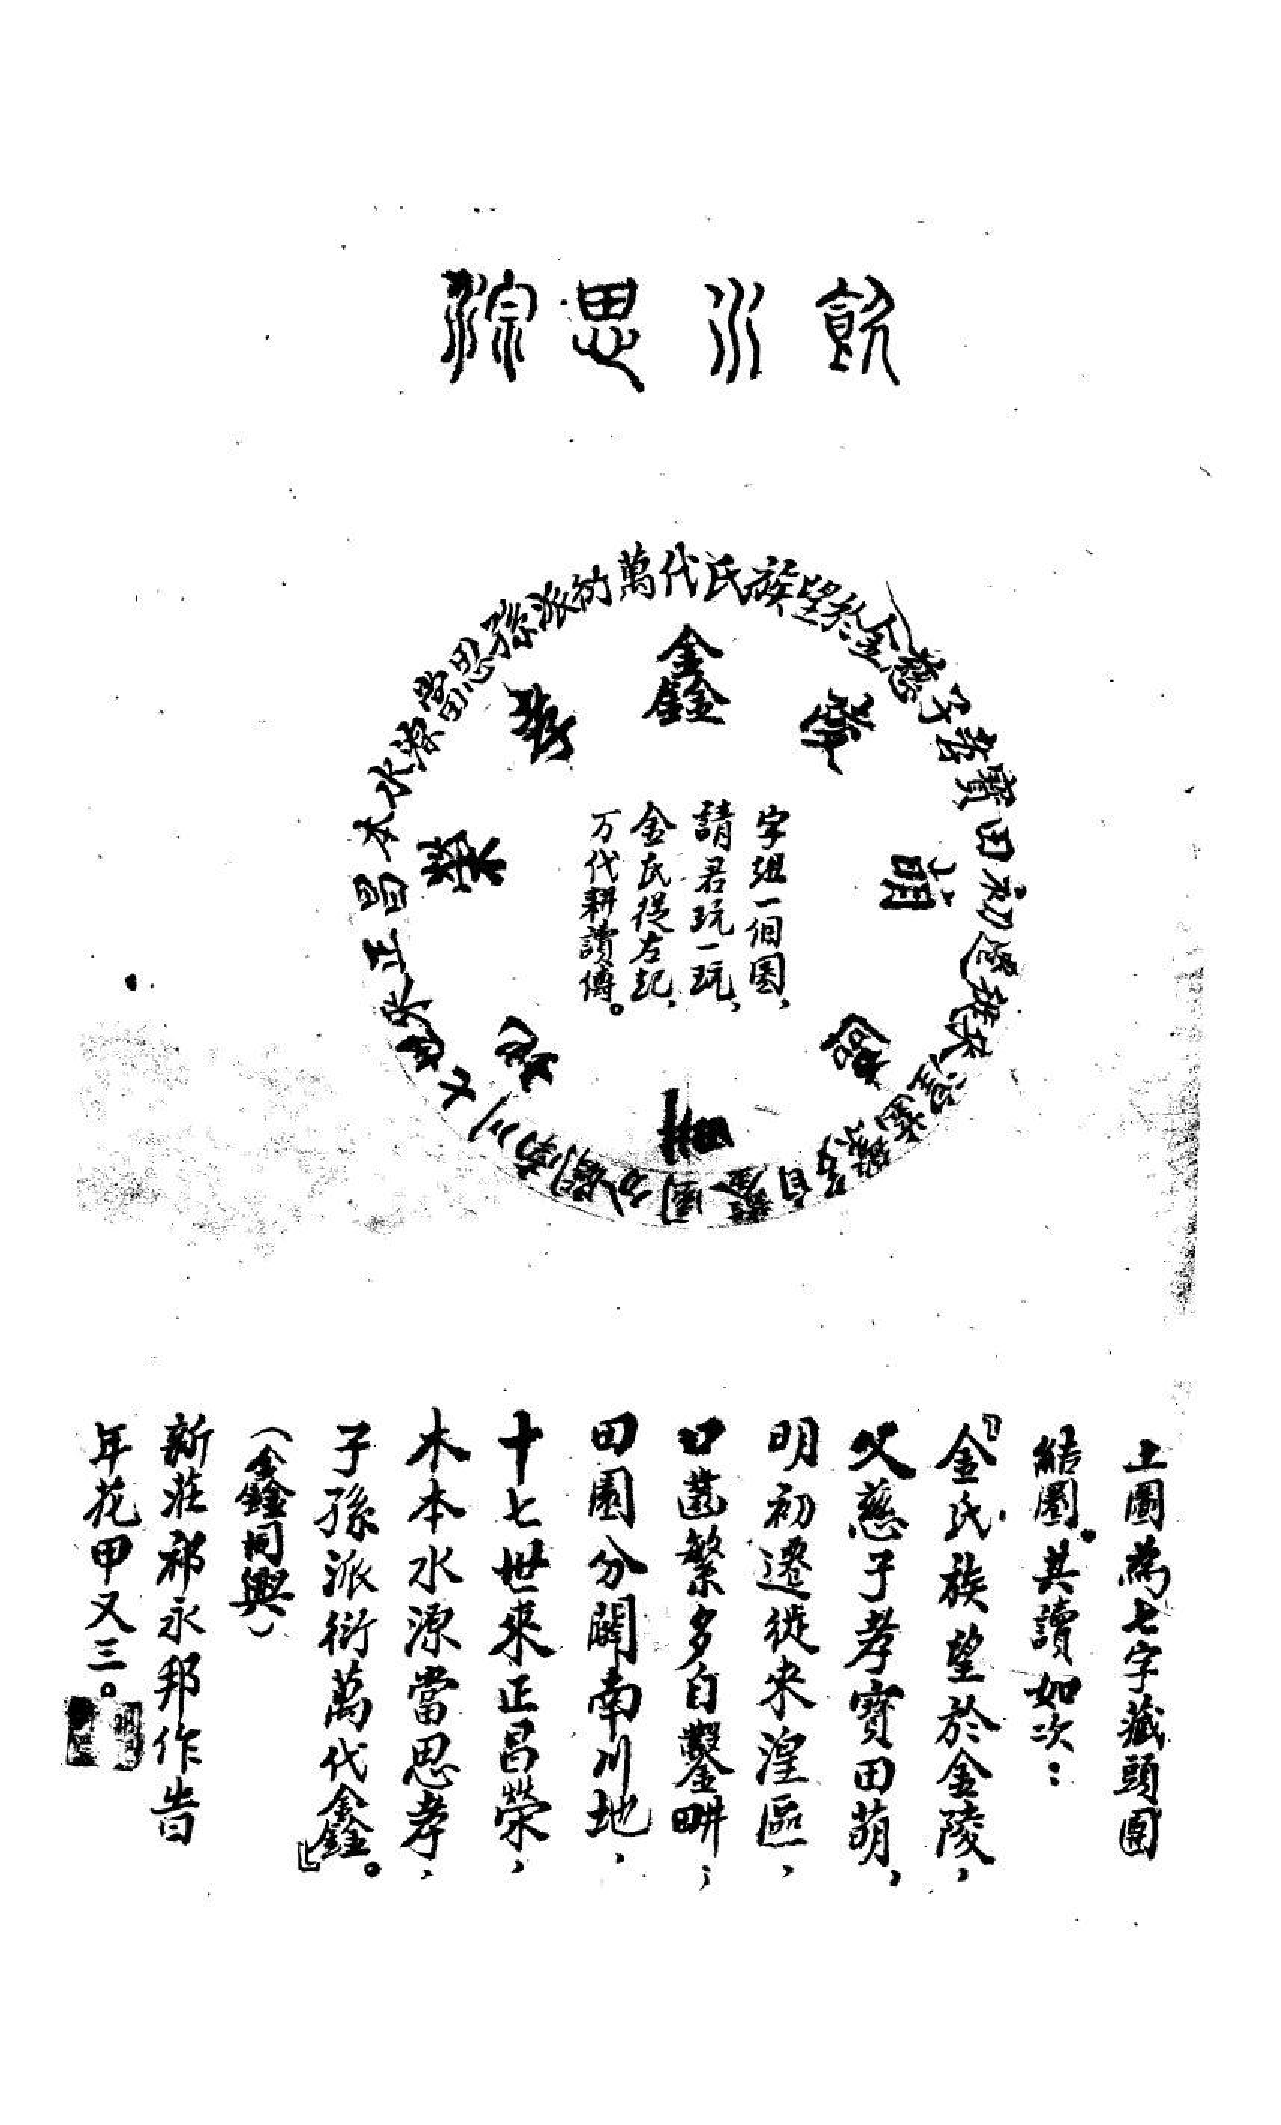 飲水思源
氏族望於金慈子孝寶田初遷徙來湟齒繁多自鑿園分闢南川七世來正昌本水源當思孫派衍萬代
鑫
陵
萌
區
畊
地
榮
孝
字組一個圖、
請君玩一玩、
金氏從左起、
万代耕讀傳。
上圖為七字藏頭團
結圖。其讀如次：
『金氏族望於金陵，
父慈子孝寶田萌，
明初遷徙來湟區，
口齒繁多自鑿畊；
田園分闢南川地，
十七世來正昌榮，
木本水源當思孝，
子孫派衍萬代鑫。』
（鑫同興）
新莊祁永邦作旹
年花甲又三。